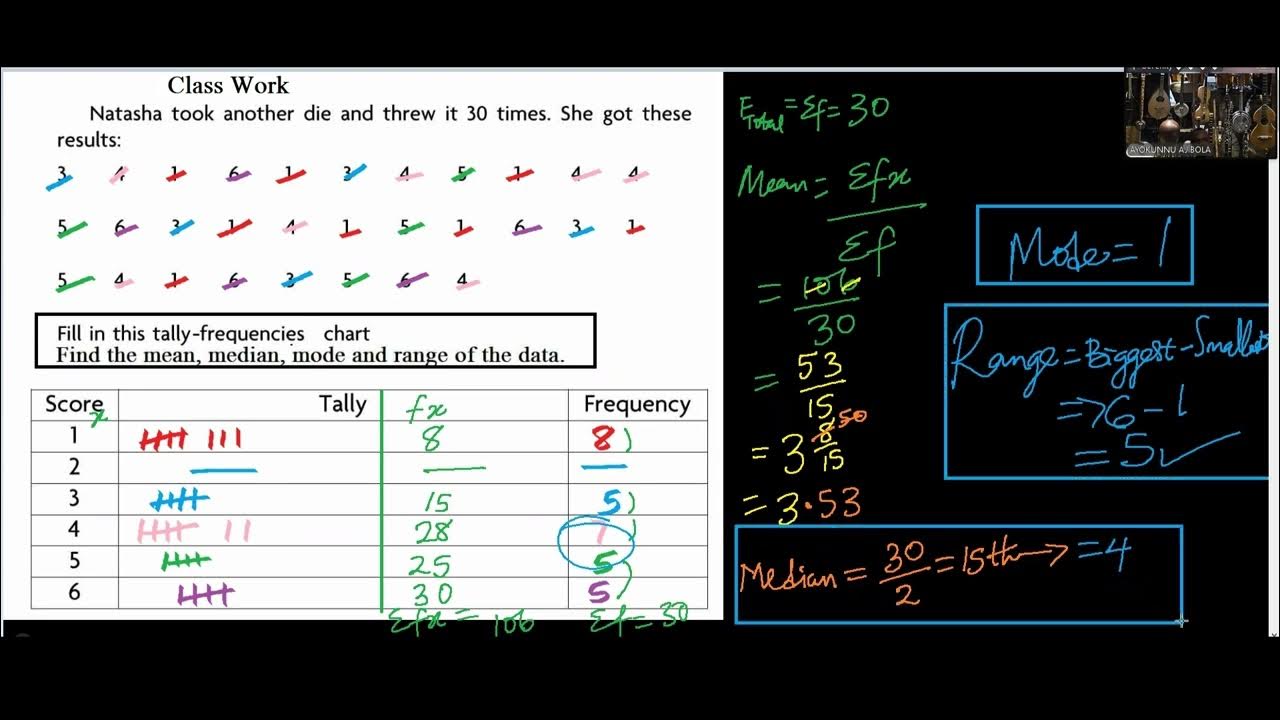 Class Work
Natasha took another die and threw it 30 times. She got these
results:
3 4 1 6 1 3 4 5 1 4 4
5 6 3 1 4 1 5 1 6 3 1
5 4 1 6 3 5 6 4
Fill in this tally-frequencies chart
Find the mean, median, mode and range of the data.
Score x Tally fx Frequency
1 8 8
2
3 15 5
4 28 7
5 25 5
6 30 5
Σfx = 106 Σf = 30
Total = Σf = 30
Mean = Σfx
Σf
= 106
30
= 53
15
= 3 8 50
15
= 3.53
Mode = 1
Range = Biggest - Smallest
=> 6 - 1
= 5 ✓
Median = 30 = 15th → = 4
2
AYOKUNNU AJIBOLA